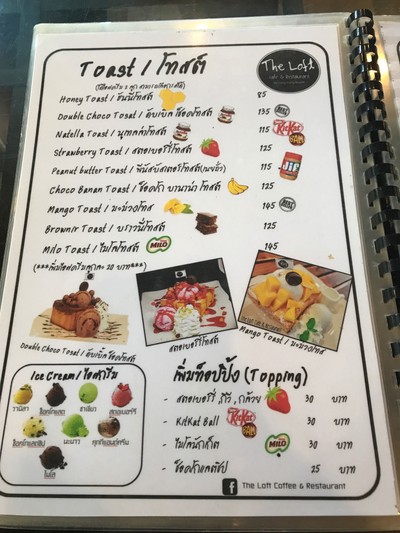 Toast / โทสต์
The Loft
cafe' & Restaurant
Honey Toast / ฮันนี่โทสต์ 85
Double Choco Tosat / ดับเบิ้ล ช็อคโทสต์ 135
Natella Toast / นูเทลล่าโทสต์ 115
KitKat
Strawberry Toast / สตอเบอร์รี่โทสต์ 125
Peanut butter Toast / พีนัสบัสเตอร์โทสต์(เนยถั่ว) 115
Jif
Choco Banan Toast / ช็อคโก้ บานาน่า โทสต์ 125
Mango Toast / มะม่วงโทส 145
Brownir Toast / บราวนี่โทสต์ 125
Milo Toast / ไมโลโทสต์ MILO 145
(***เพิ่มไอศครีมลูกละ 20 บาท***)
Double Choco Tosat / ดับเบิ้ล ช็อคโทสต์
สตอเบอร์รี่โทสต์
Mango Toast / มะม่วงโทส
Ice Cream / ไอศครีม
วานิลา ช็อคโกแลต ชาเขียว สตอเบอร์รี่
ช็อคโกแลตชิป มะนาว คุกกี้แอนด์ครีม
ไมโล
เพิ่มท็อปปิ้ง (Topping)
- สตอเบอรี่, กีวี, กล้วย 30 บาท
- KitKat Ball KitKat 30 บาท
- ไมโลนักเก็ต MILO 30 บาท
- ช็อคโกแลตชิป 25 บาท
f The Loft Coffee & Restaurant